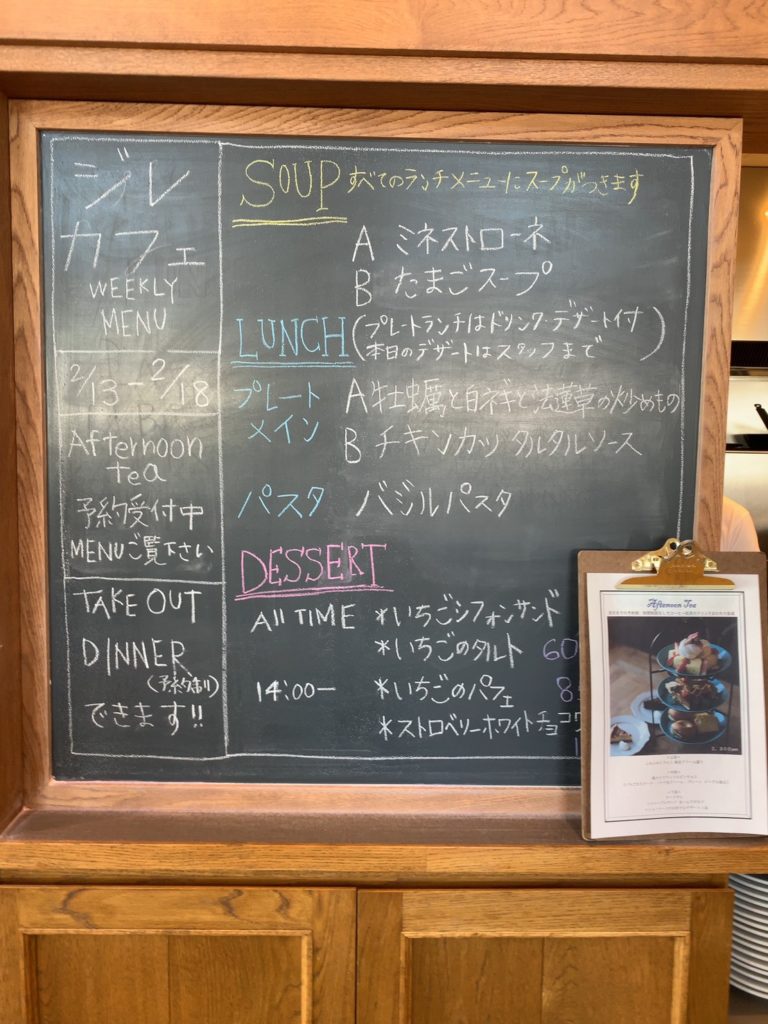 ジレ
カフェ
WEEKLY
MENU
2/13-2/18
Afternoon
tea
予約受付中
MENUご覧下さい
TAKE OUT
DINNER
(予約有り)
できます!!
SOUP すべてのランチメニューにスープがつきます
A ミネストローネ
B たまごスープ
LUNCH (プレートランチはドリンク・デザート付
本日のデザートはスタッフまで)
プレート
メイン
A 牡蠣と白ネギと法蓮草の炒めもの
B チキンカツ タルタルソース
パスタ バジルパスタ
DESSERT
All TIME *いちごシフォンサンド
*いちごのタルト 60
14:00- *いちごのパフェ 8
*ストロベリーホワイトチョコ
Afternoon Tea